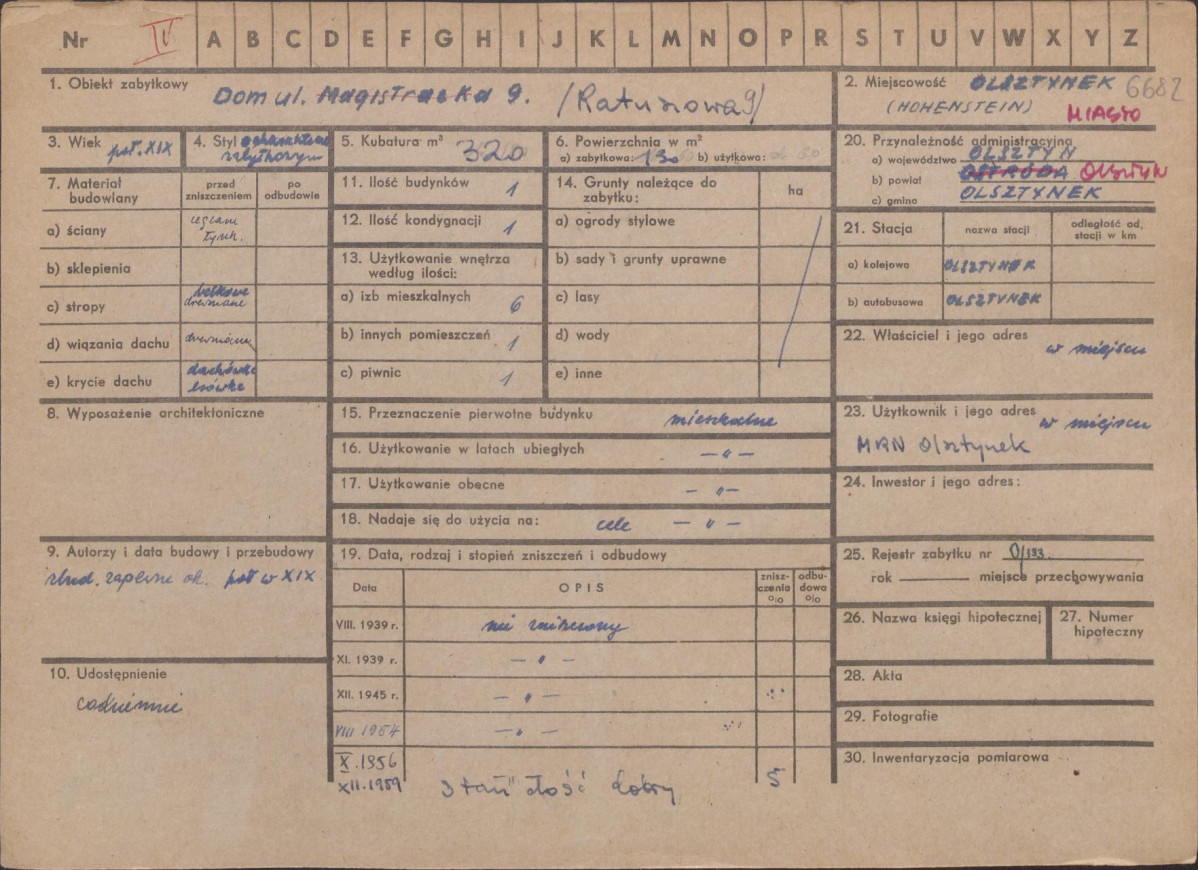 Nr IV A B C D E F G H I J K L M N O P R S T U V W X Y Z
1. Obiekt zabytkowy
Dom ul. Magistracka 9. (Ratuszowa 9)
2. Miejscowość OLSZTYNEK 6682
(HOHENSTEIN) MIASTO
3. Wiek poł. XIX
4. Styl o charakterze
zabytkowym
5. Kubatura m³ 320
6. Powierzchnia w m²
a) zabytkowa: 130 b) użytkowa:
20. Przynależność administracyjna
a) województwo OLSZTYN
b) powiat OSTRÓDA OLSZTYN
c) gmina OLSZTYNEK
7. Materiał
budowlany
przed
zniszczeniem
po
odbudowie
a) ściany
tynk.
b) sklepienia
c) stropy belkowe
drewniane
d) wiązania dachu drewniane
e) krycie dachu dachówka
esówka
11. Ilość budynków 1
12. Ilość kondygnacji 1
13. Użytkowanie wnętrza
według ilości:
a) izb mieszkalnych 6
b) innych pomieszczeń 1
c) piwnic 1
14. Grunty należące do
zabytku:
ha
a) ogrody stylowe
b) sady i grunty uprawne
c) lasy
d) wody
e) inne
21. Stacja
nazwa stacji
odległość od
stacji w km
a) kolejowa OLSZTYNEK
b) autobusowa OLSZTYNEK
22. Właściciel i jego adres
w miejscu
8. Wyposażenie architektoniczne
15. Przeznaczenie pierwotne budynku mieszkalne
16. Użytkowanie w latach ubiegłych — " —
17. Użytkowanie obecne — " —
18. Nadaje się do użycia na: cele — " —
23. Użytkownik i jego adres
w miejscu
MRN Olsztynek
24. Inwestor i jego adres:
9. Autorzy i data budowy i przebudowy
zbud. zapewne ok. poł w XIX
10. Udostępnienie
codziennie
19. Data, rodzaj i stopień zniszczeń i odbudowy
Data
OPIS
znisz-
czenia
%
odbu-
dowa
%
VIII. 1939 r. nie zniszczony
XI. 1939 r. — " —
XII. 1945 r. — " —
VIII 1954 — " —
X. 1956
XII. 1959 Stan dość dobry 5
25. Rejestr zabytku nr 0/133.
rok miejsce przechowywania
26. Nazwa księgi hipotecznej
27. Numer
hipoteczny
28. Akta
29. Fotografie
30. Inwentaryzacja pomiarowa